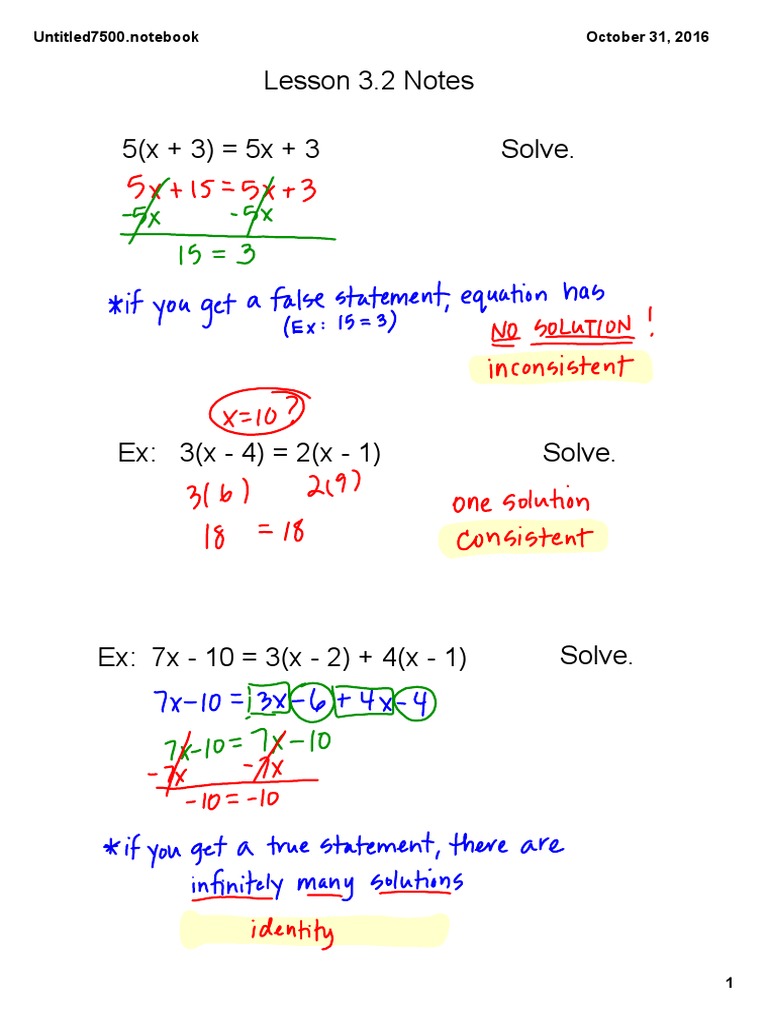 Untitled7500.notebook October 31, 2016
Lesson 3.2 Notes
5(x + 3) = 5x + 3 Solve.
5x + 15 = 5x + 3
-5x -5x
15 = 3
*if you get a false statement, equation has
(Ex: 15 = 3)
NO SOLUTION!
inconsistent
x=10?
Ex: 3(x - 4) = 2(x - 1) Solve.
3(6) 2(9)
one solution
18 = 18
Consistent
Ex: 7x - 10 = 3(x - 2) + 4(x - 1) Solve.
7x-10 = 3x-6 + 4x-4
7x-10 = 7x-10
-7x -7x
-10 = -10
*if you get a true statement, there are
infinitely many solutions
identity
1